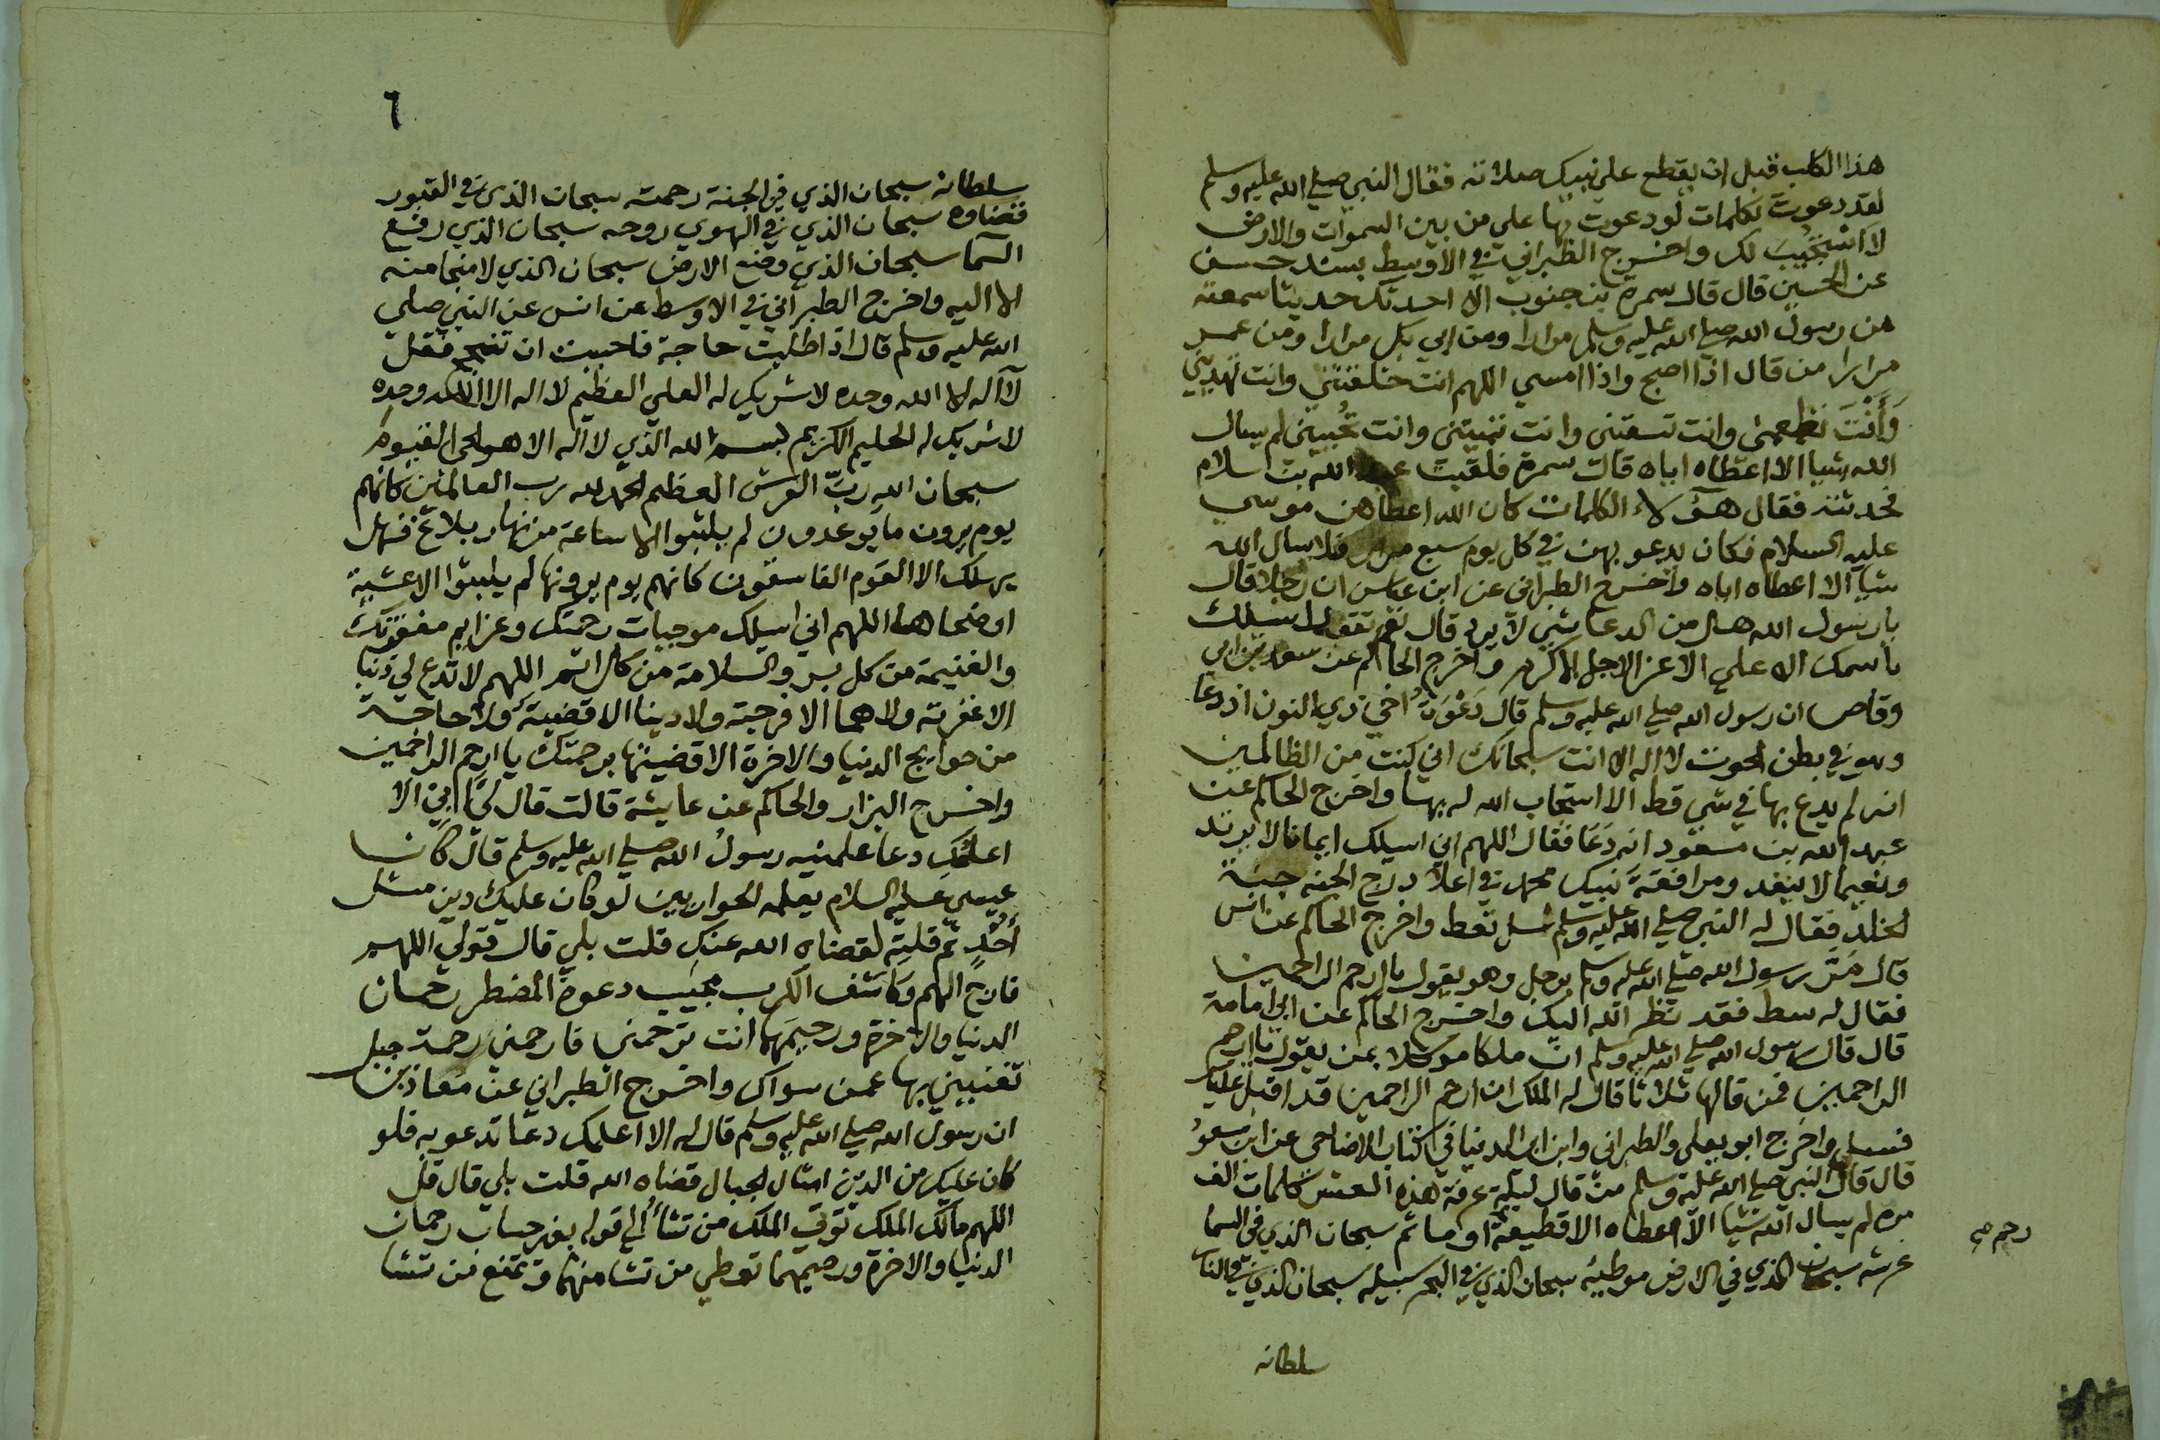 هذا الكلب قبل ان يقطع على نبيك صلاته فقال النبي صلي الله عليه وسلم
لقد دعوت بكلمات لو دعوت بها على من بين السموات والارض
لا استجيب لك واخرج الطبراني في الاوسط بسند حسن
عن الحسين قال قال سمرة بن جنوب الا احدثك حديثا سمعته
من رسول الله صلي الله عليه وسلم مرارا ومن ابي بكر مرارا ومن عمر
مرارا من قال اذا اصبح واذا امسي اللهم انت خلقتني وانت تهديني
وَأَنْتَ تطعمني وانت تسقني وانت تميتني وانت تحييني لم يسال
الله شيا الا اعطاه اياه قال سمرة فلقيت عبد الله بن سلام
فحدثته فقال هؤلاء الكلمات كان الله اعطاهن موسي
عليه السلام فكان يدعو بهن في كل يوم سبع مرار فلا سال الله
شيا الا اعطاه اياه واخرج الطبراني عن ابن عباس ان رجلا قال
يا رسول الله هل من الدعا شي لا يرد قال نعم تقول اسلك
باسمك الاعلي الاعز الاجل الاكرم واخرج الحاكم عن سعد بن ابي
وقاص ان رسول الله صلي الله عليه وسلم قال دَعْوَةُ اخي ذي النون اذ دعا
وهو في بطن الحوت لا اله الا انت سبحانك اني كنت من الظالمين
انه لم يدع بها في شي قط الا استجاب الله له بها واخرج الحاكم عن
عبد الله بن مسعود انه دَعَا فقال اللهم اني اسيلك ايمانا لا يرتد
ونعيما لا ينفد ومرافقة نبيك محمد في اعلا درج الجنه جنة
الخلد فقال له النبي صلي الله عليه وسلم سل تعط واخرج الحاكم عن انس
قال مَرَّ رسول الله صلي الله عليه وسلم برجل وهو يقول يا ارحم الراحمين
فقال له سل فقد نظر الله اليك واخرج الحاكم عن ابي امامة
قال قال رسول الله صلي الله عليه وسلم ان ملكا موكلا بمن يقول يا ارحم
الراحمين فمن قالها ثلاثا قال له الملك ان ارحم الراحمين قد اقبل عليك
فسل واخرج ابو يعلي والطبراني وابن ابي الدنيا في كتاب الاضاحي عن ابن مسعود
قال قال النبي صلي الله عليه وسلم من قال ليلة عرفة هذه العشر كلمات الف
مرة لم يسال الله شيا الا اعطاه الا قطيعة رحم او ماثم سبحان الذي في السما
عرشه سبحان الذي في الارض موطيه سبحان الذي في البحر سبيله سبحان الذي في النار
سلطانه
٦
سلطانه سبحان الذي في الجنة رحمته سبحان الذي في القبور
قضاوه سبحان الذي في الهوي روحه سبحان الذي رفع
السما سبحان الذي وضع الارض سبحان الذي لا منجا منه
الا اليه واخرج الطبراني في الاوسط عن انس عن النبي صلي
الله عليه وسلم قال اذا طلبت حاجة فاحببت ان تنجح فقل
لا اله الا الله وحده لا شريك له العلي العظيم لا اله الا الله وحده
لا شريك له الحليم الكريم بسم الله الذي لا اله الا هو الحي القيوم
سبحان الله ربّ العرش العظيم الحمد لله رب العالمين كانهم
يوم يرون ما يوعدون لم يلبثوا الا ساعة من نهار بلاغ فهل
يهلك الا القوم الفاسقون كانهم يوم يرونها لم يلبثوا الا عشية
او ضحاها اللهم اني اسيلك موجبات رحمتك وعزايم مغفرتك
والغنيمة من كل بر والسلامة من كل اثم اللهم لا تدع لي ذنبا
الا غفرته ولا هما الا فرجته ولا دينا الا قضيته ولا حاجة
من حوايج الدنيا والاخرة الا قضيتها برحمتك يا ارحم الراحمين
واخرج البزار والحاكم عن عايشة قالت قال لي ابي الا
اعلمك دعا علمنيه رسول الله صلي الله عليه وسلم قال كان
عيسي عليه السلام يعلمه الحواريين لو كان عليك دين مثل
أُحُدٍ ثم قلتِه لقضاه الله عنكِ قلت بلي قال قولي اللهم
فارج الهم وكاشف الكرب مجيب دعوة المضطر رحمان
الدنيا والاخرة ورحيمهما انت ترحمني فارحمني رحمة
تغنيني بها عمن سواك واخرج الطبراني عن معاذ بن جبل
ان رسول الله صلي الله عليه وسلم قال له الا اعلمك دعا تدعو به فلو
كان عليك من الدين امثال الجبال قضاه الله قلت بلي قال قل
اللهم مالك الملك توتي الملك من تشأ الي قوله بغير حساب رحمان
الدنيا والاخرة ورحيمهما تعطي من تشا منهما وتمنع من تشا